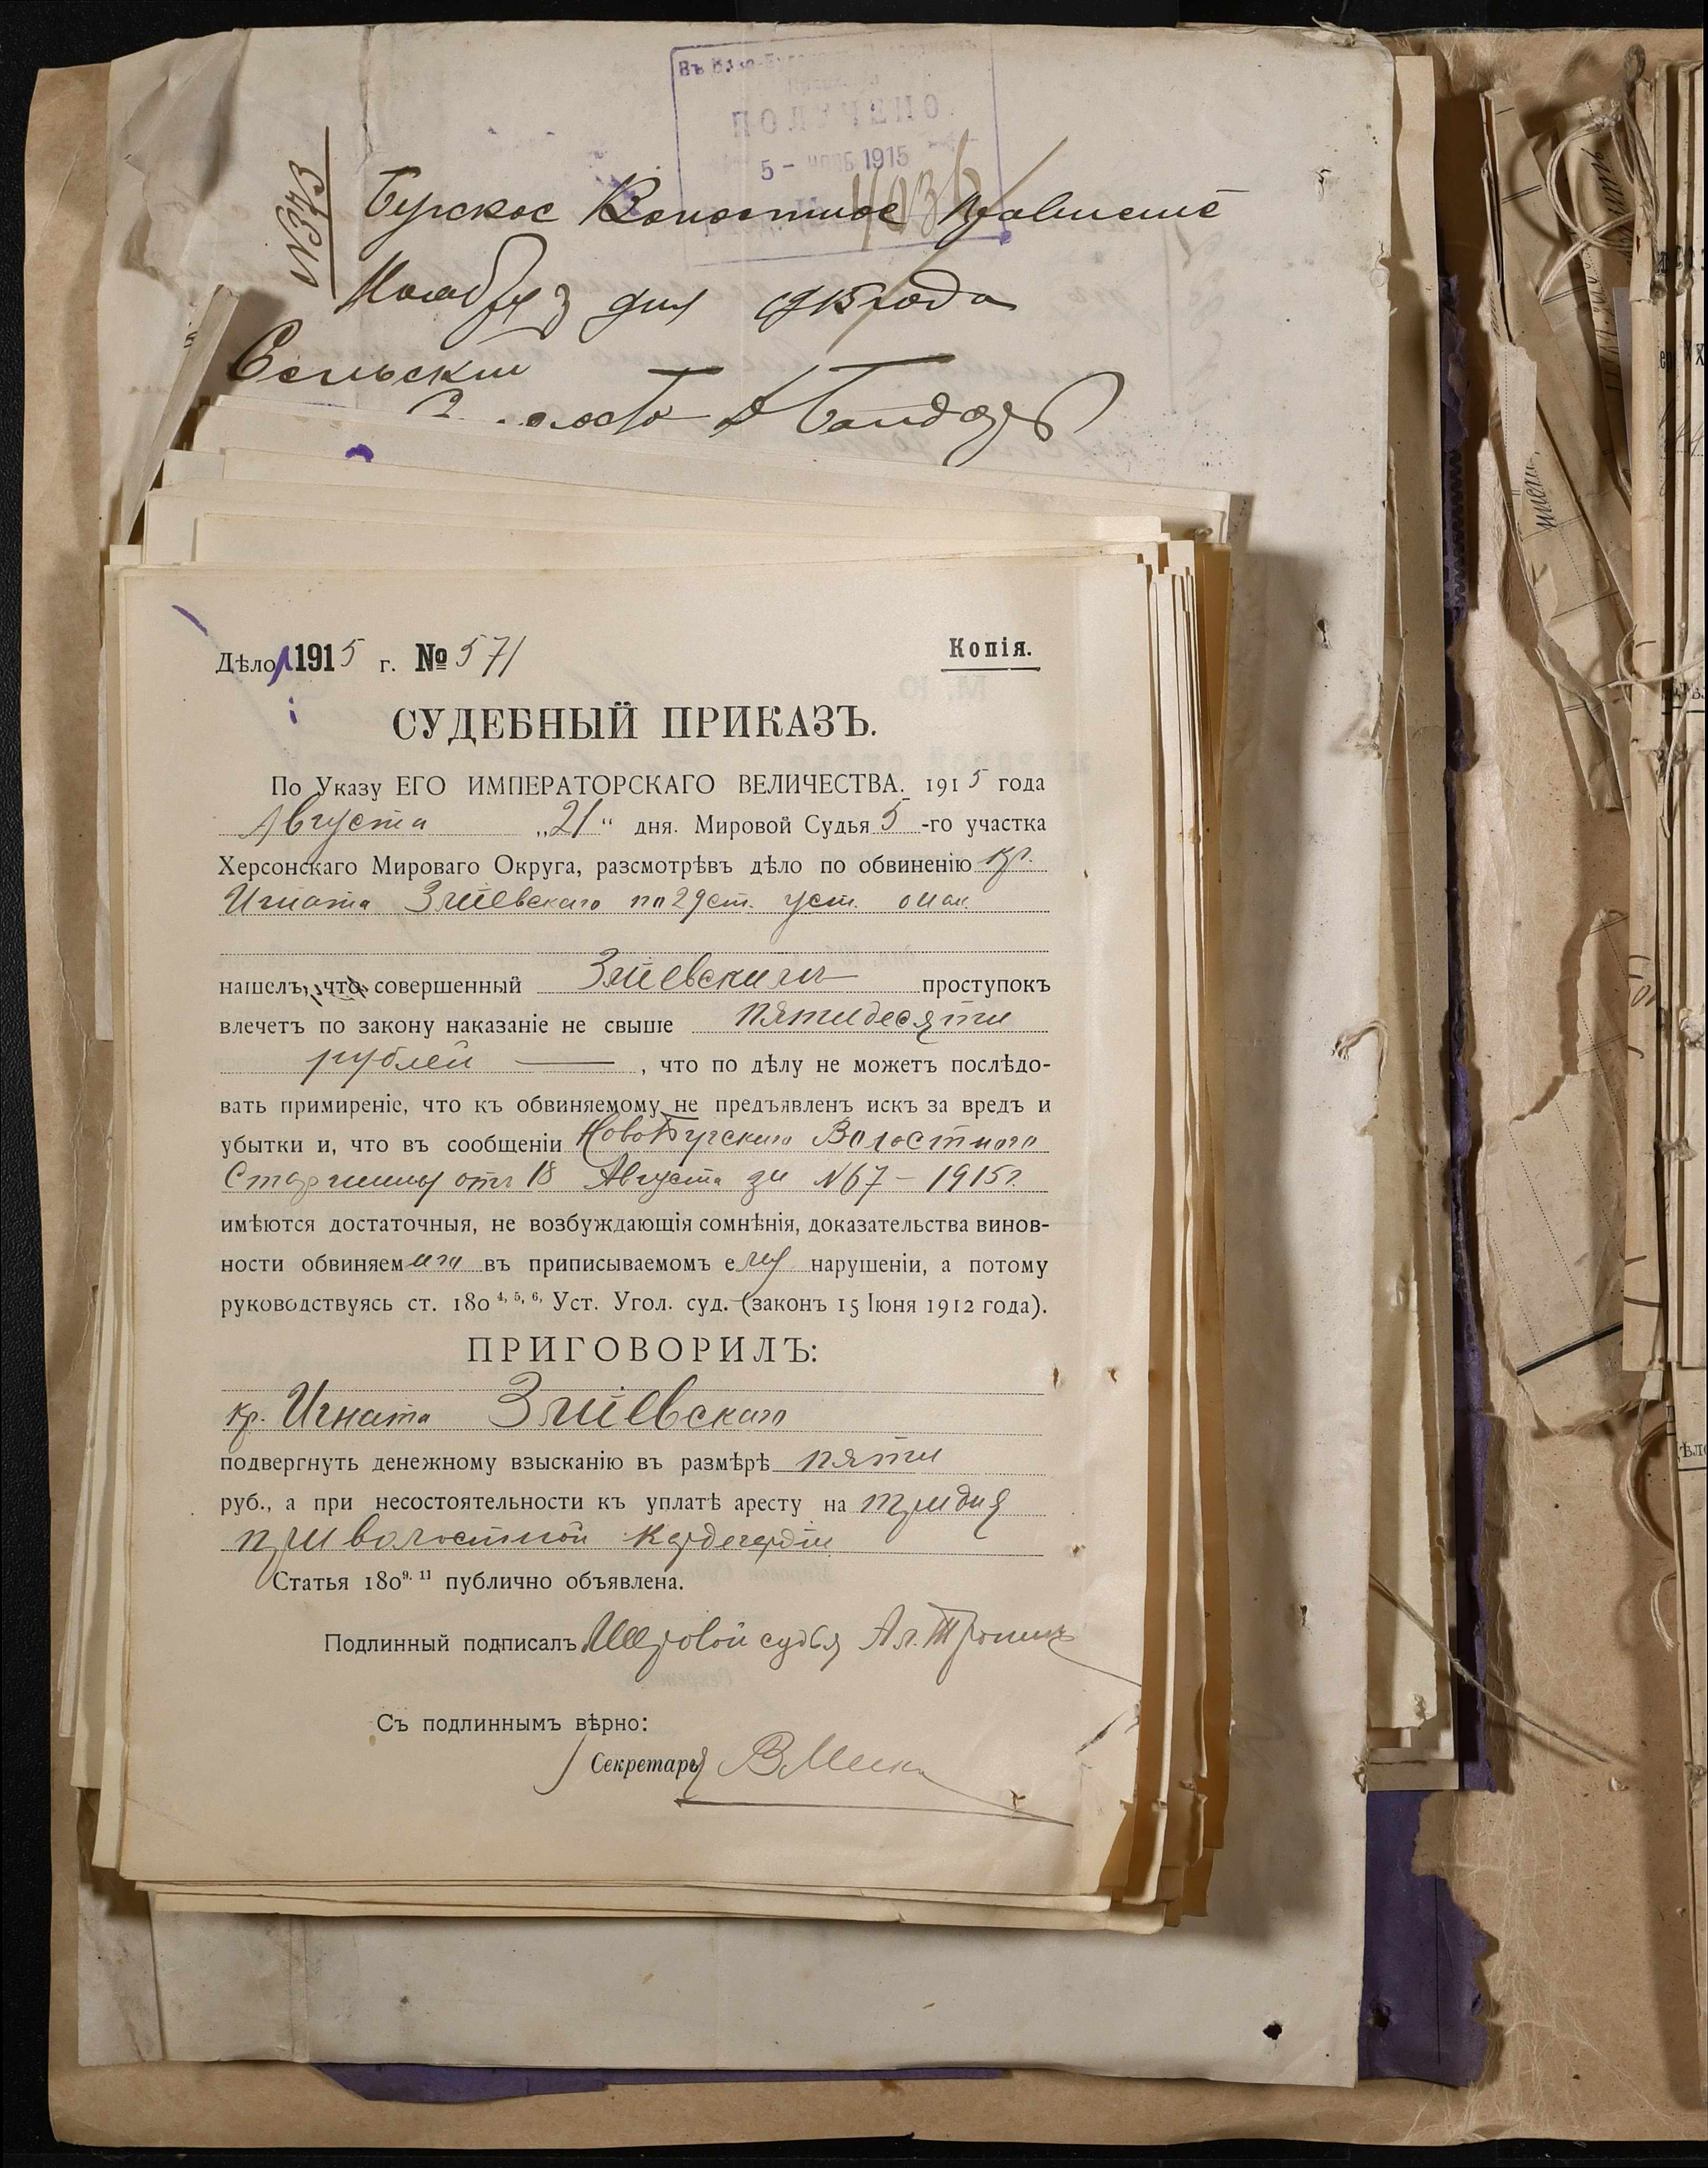 ПОЛУЧЕНО
5 - 1915
№343
Бугское Волостное Правленіе
Ноября 3 дня 1915 года
Сельскій
Дѣло 1915 г. № 571
Копія.
СУДЕБНЫЙ ПРИКАЗЪ.
По Указу ЕГО ИМПЕРАТОРСКАГО ВЕЛИЧЕСТВА. 1915 года
Августа „21“ дня. Мировой Судья 5-го участка
Херсонскаго Мироваго Округа, разсмотрѣвъ дѣло по обвиненію кр.
Игната Зміевскаго по 29 ст. уст. о нак.
нашелъ, что совершенный Зміевскимъ проступокъ
влечетъ по закону наказаніе не свыше пятидесяти
рублей —, что по дѣлу не можетъ послѣдо-
вать примиреніе, что къ обвиняемому не предъявленъ искъ за вредъ и
убытки и, что въ сообщеніи НовоБугскаго Волостного
Старшины отъ 18 Августа за № 67 - 1915 г.
имѣются достаточныя, не возбуждающія сомнѣнія, доказательства винов-
ности обвиняемаго въ приписываемомъ ему нарушеніи, а потому
руководствуясь ст. 180 4, 5, 6, Уст. Угол. суд. (законъ 15 Іюня 1912 года).
ПРИГОВОРИЛЪ:
кр. Игната Зміевскаго
подвергнуть денежному взысканію въ размѣрѣ пяти
руб., а при несостоятельности къ уплатѣ аресту на три дня
при волостной кордегардіи
Статья 180 9. 11 публично объявлена.
Подлинный подписалъ Мировой судья Ал.
Съ подлиннымъ вѣрно:
Секретарь